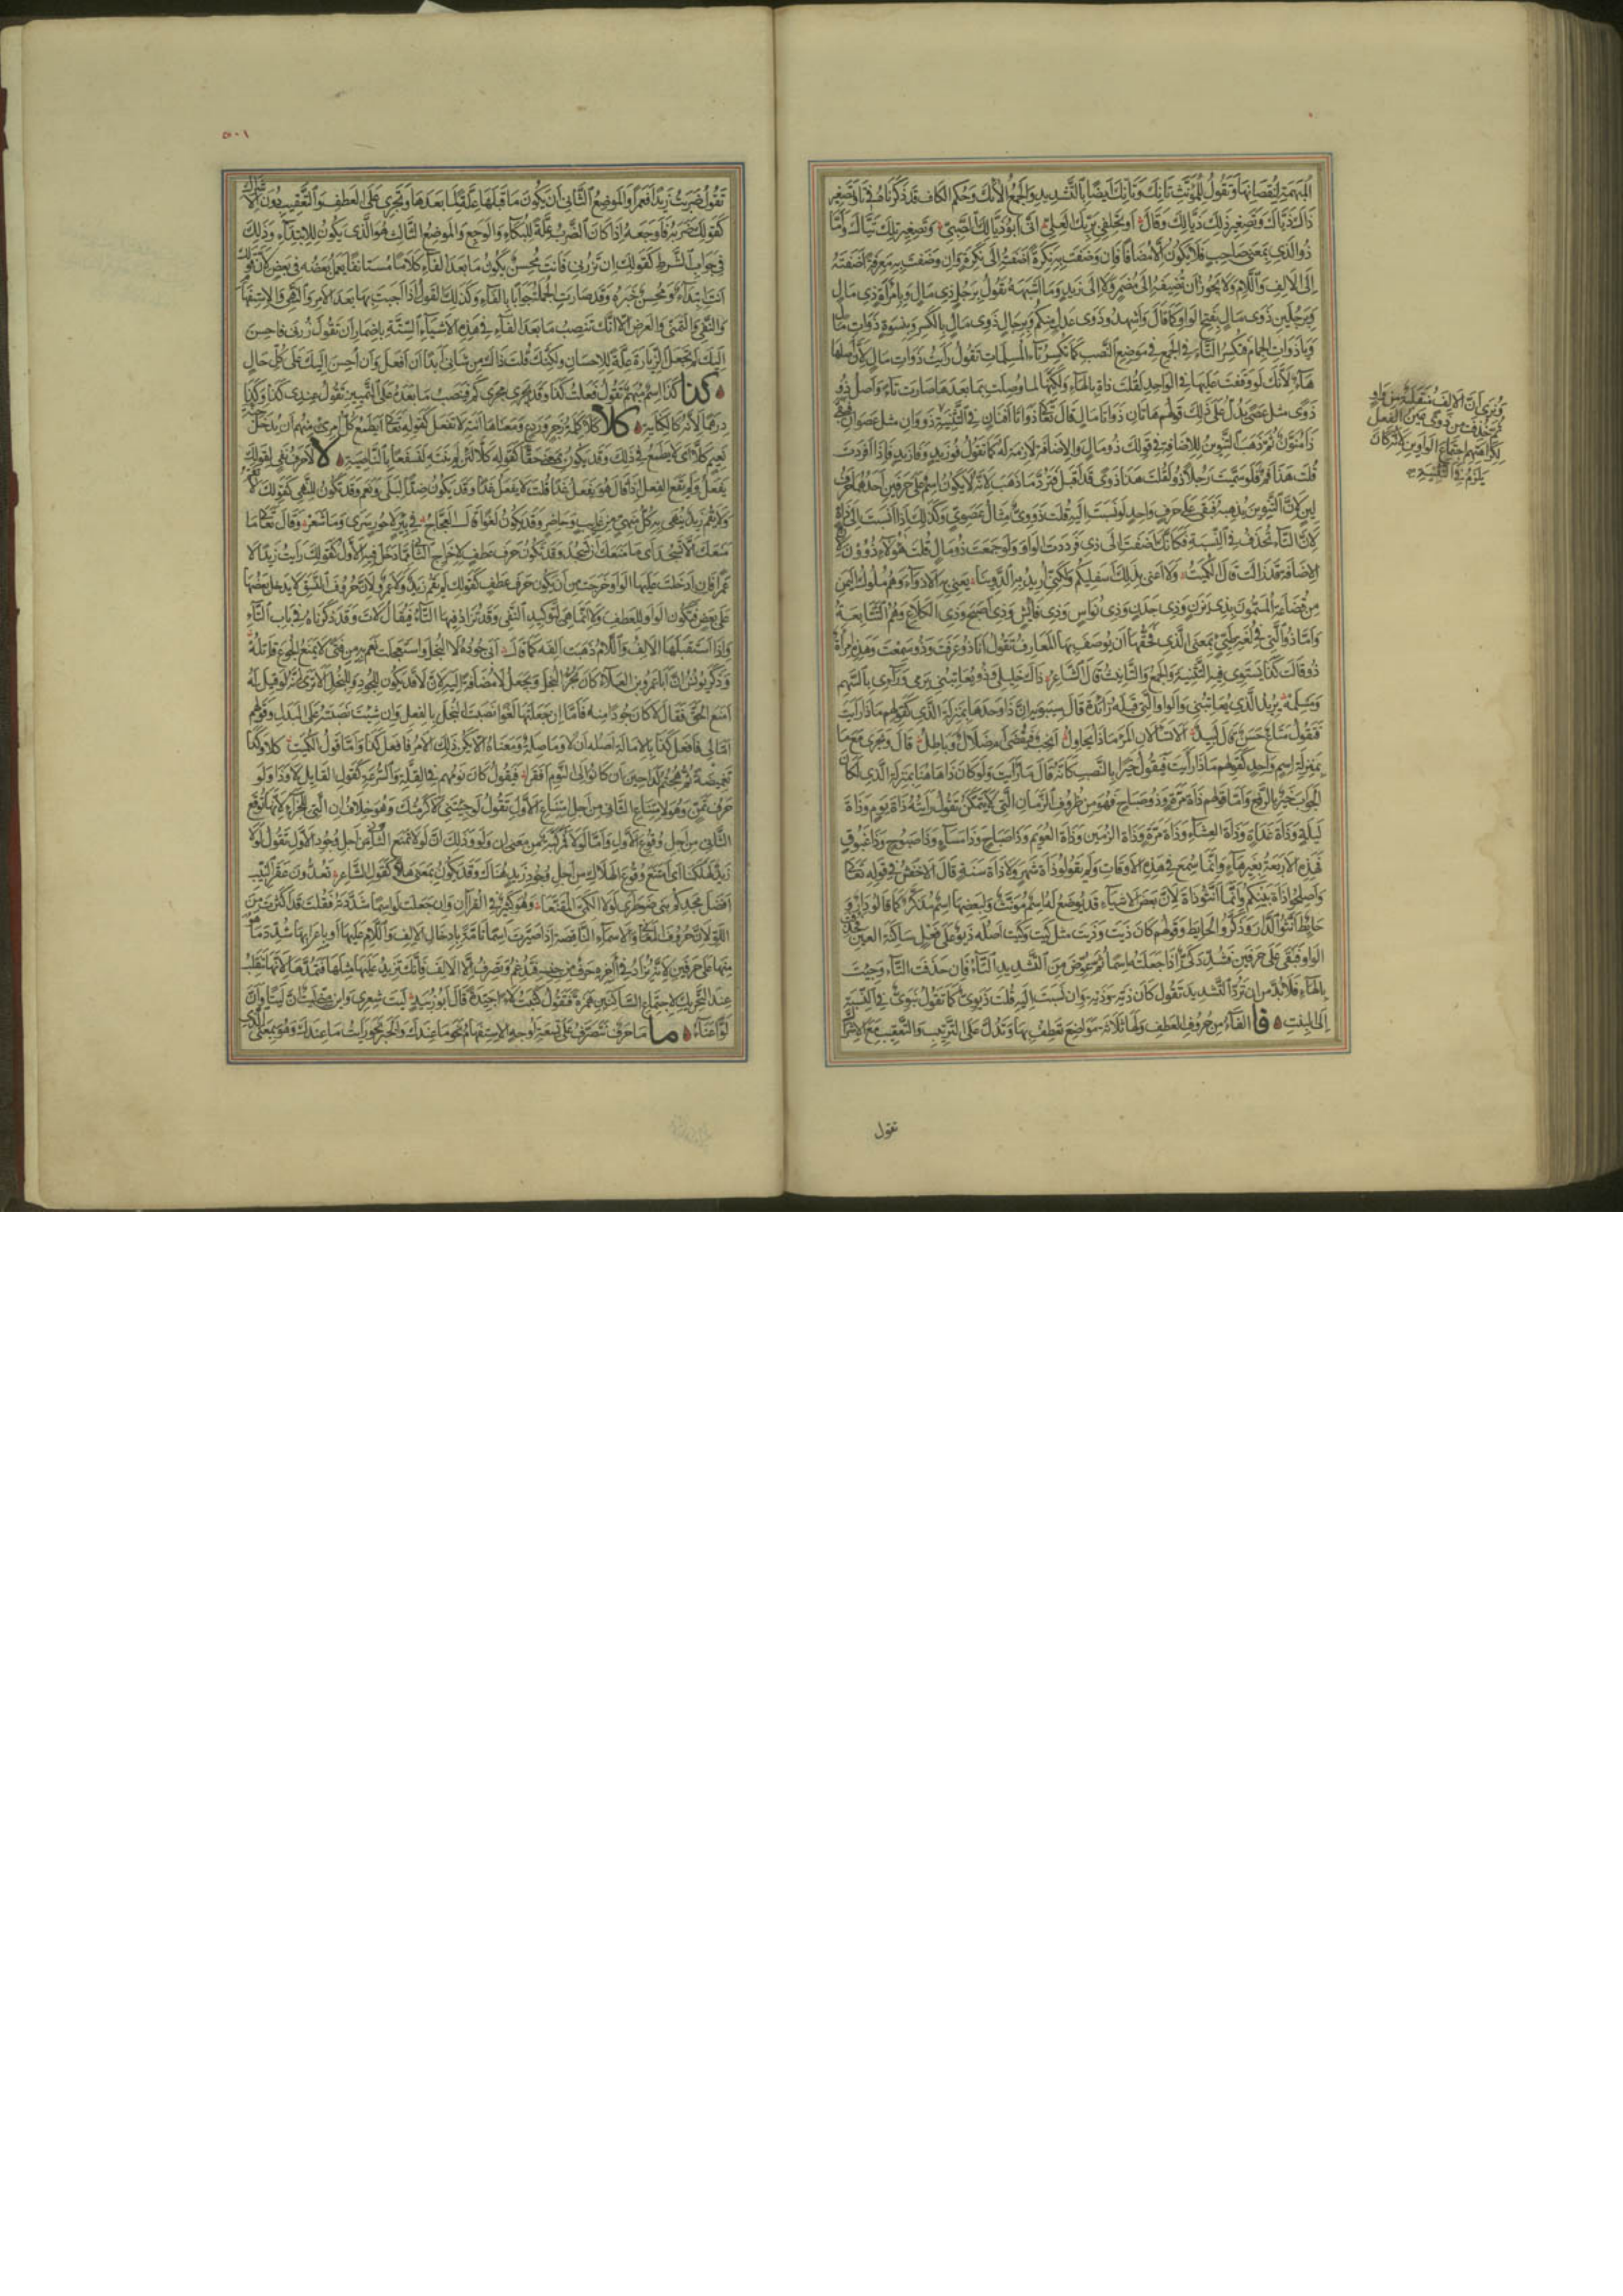 المبهمة لنقصانها وتقول للمؤنث تانك وتانك ايضا بالتشديد والجمع الأنك وحكم الكاف قد ذكرناه في تا وتصغير
ذاك ذياك وتصغير ذلك ذيالك وقال او تحلفي بربك العلي اني ابو ذيالك الصبي وتصغير تلك تياك واما
ذو الذي بمعنى صاحب فلا يكون الا مضافا فان وصفت به نكرة اضفته الى نكرة وان وصفت به معرفة اضفته
الى الالف واللام ولا يجوز ان تضيفه الى مضمر ولا الى زيد وما اشبهه تقول برجل ذي مال وبامراة ذي مال
وبرجلين ذوى مال بفتح الواو كما قال واشهدوا ذوى عدل منكم وبرجال ذوى مال بالكسر وبنسوة ذوات مال
وياذوات الجمام فتكسر التاء في الجمع في موضع النصب كما تكسر تاء المسلمات تقول رايت ذوات مال لان اصلها
هاء لأنك لو وقفت عليها في الواحد لقلت ذاه بالهاء ولكنها لما وصلت بما بعدها صارت تاء واصل ذو
ذوى مثل عصى يدل على ذلك قولهم هاتان ذواتا مال قال تعالى ذواتا افنان في التثنية
ذا منون ثم ذهب التنوين للاضافة في قولك ذو مال والاضافة لازمة له كما تقول فو زيد وفا زيد فاذا افردت
قلت هذا فم فلو سميت رجلا ذو لقلت هذا ذوى قد اقبل فترد ما ذهب لانه لا يكون اسم على حرفين احدهما حرف
لين لان التنوين يذهبه فيبقى على حرف واحد ولو نسبت اليه قلت ذووى مثال عصوى وكذلك اذا نسبت الى ذات
لان التاء تحذف في النسبة فكانك اضفت الى ذي فرددت الواو ولو جمعت ذو مال قلت هؤلاء ذوون لان
الاضافة قد زالت قال الكميت ولا اعني بذلك اسفليكم ولكني اريد به الذوينا يعني به الاذواء وهم ملوك اليمن
من قضاعة المسمون بذي يزن وذي جدن وذي نواس وذي فايش وذي اصبح وذي الكلاع وهم التبابعة
واما ذو التي في لغة طيئ بمعنى الذي فحقها ان يوصف بها المعارف تقول انا ذو عرفت وذو سمعت وهذه امرأة
ذو قالت كذا يستوى فيه التثنية والجمع والتانيث قال الشاعر ذاك خليلي وذو يعاتبني يرمي ورائي بالسهم
وامسلمه يريد الذي يعاتبني والواو التي قبله زائدة قال سيبويه ان ذا وحدها بمنزلة الذي كقولهم ماذا رايت
فتقول متاع حسن قال لبيد الا تسألان المرء ماذا يحاول انحب فيقضى ام ضلال وباطل قال وتجرى مع ما
بمنزلة اسم واحد كقولهم ماذا رايت فيقول خيرا بالنصب كانه قال ما رايت ولو كان ذا هاهنا بمنزلة الذي لكان
الجواب خير بالرفع واما قولهم ذات مرة وذو صباح فهو من ظروف الزمان التي لا تتمكن تقول رايته ذات يوم وذات
ليلة وذات غداة وذات العشاء وذات مرة وذات الزمين وذات العويم وذا صباح وذا مساء وذا صبوح وذا غبوق
فهذه الاربعة بغير هاء وانما سمع في هذه الاوقات ولم يقولوا ذات شهر ولا ذات سنة قال الاخفش في قوله تعالى
واصلحوا ذات بينكم وانما انثوا ذات لان بعض الاشياء قد يوضع له اسم مؤنث ولبعضها اسم مذكر كما قالوا دار و
حائط انثوا الدار وذكروا الحائط وقولهم كان ذيت وذيت مثل كيت وكيت اصله ذيو على فعل ساكنة العين فحذفت
الواو فبقى على حرفين فشدد كما شدد كي اذا جعلته اسما ثم عوض من التشديد التاء فان حذفت التاء وجئت
بالهاء فلا بد من ان ترد التشديد تقول كان ذية وذية وان نسبت اليه قلت ذيوي كما تقول بنوي في النسبة
الى البنت فا الفاء من حروف العطف ولها ثلاثة مواضع تعطف بها وتدل على الترتيب والتعقيب مع الاشتراك
تقول
ويرى ان الالف منقلبة من واو
ثم حذفت من ذوى عين الفعل
لكراهتهم اجتماع الواوين لانه كان
يلزم في التثنية
٥٠١
تقول ضربت زيدا فعمرا والموضع الثاني ان يكون ما قبلها علة لما بعدها وتجرى على العطف والتعقيب دون الاشتراك
كقولك ضربه فبكى وضربه فاوجعه اذا كان الضرب علة للبكاء والوجع والموضع الثالث هو الذي يكون للابتداء وذلك
في جواب الشرط كقولك ان تزرني فانت محسن يكون ما بعد الفاء كلاما مستانفا يعمل بعضه في بعض لان قولك
انت ابتداء ومحسن خبره وقد صارت الجملة جوابا بالفاء وكذلك القول اذا اجبت بها بعد الامر والنهي والاستفهام
والنفي والتمني والعرض الا انك تنصب ما بعد الفاء في هذه الاشياء الستة باضمار ان تقول زرني فاحسن
اليك لم تجعل الزيارة علة للاحسان ولكنك قلت ذاك من شاني ابدا ان افعل وان احسن اليك على كل حال
كذا كذا اسم مبهم تقول فعلت كذا وقد يجري مجرى كم فتنصب ما بعده على التمييز تقول عندي كذا وكذا
درهما لانه كالكناية كلا كلا كلمة زجر وردع ومعناها انته لا تفعل كقوله تعالى ايطمع كل امرئ منهم ان يدخل جنة
نعيم كلا اى لا يطمع في ذلك وقد يكون بمعنى حقا كقوله كلا لئن لم ينته لنسفعا بالناصية لا لا حرف نفي لقولك
يفعل ولم يقع الفعل اذا قال هو يفعل غدا قلت لا يفعل غدا وقد يكون ضدا لبلى ونعم وقد تكون للنهي كقولك لا تقم
ولا يقم زيد ينهى به كل منهي من غايب وحاضر وقد يكون لغوا قال العجاج في بئر لا حور سرى وما شعر وقال تعالى ما
منعك الا تسجد اى ما منعك ان تسجد وقد تكون حرف عطف لاخراج الثاني مما دخل فيه الاول كقولك رايت زيدا لا
عمرا فان ادخلت عليها الواو خرجت من ان تكون حرف عطف كقولك لم يقم زيد ولا عمرو لان حروف النسق لا يدخل بعضها
على بعض فتكون الواو للعطف ولا انما هي لتوكيد النفي وقد تزاد فيها التاء فيقال لات وقد ذكرناه في باب التاء
واذا استقبلها الالف واللام ذهبت الفه كما قال ابى جوده لا البخل واستعجلت نعم به من فتى لا يمنع الجوع قاتله
وذكر يونس ان ابا عمرو بن العلاء كان يجر البخل ويجعل لا مضافة اليه لان لا قد يكون للجود وللبخل الا ترى انه لو قيل له
امنع الحق فقال لا كان جودا منه فاما ان جعلتها لغوا نصبت البخل بالفعل وان شئت نصبته على البدل وقولهم
امالي فافعل كذا بالامالة اصله ان لا وما صلة ومعناه الا يكن ذلك الامر فافعل كذا واما قول الكميت كلا وكذا
تغميضة ثم هجتم لدى حين ان كانوا الى النوم افقرا فيقول كان نومهم في القلة والسرعة كقول القايل لا وذا ولو
حرف تمن وهو لامتناع الثاني من اجل امتناع الاول تقول لو جئتني لاكرمتك وهو خلاف ان التي للجزاء لانها توقع
الثاني من اجل وقوع الاول واما لولا فمركبة من معنى ان ولو وذلك ان لولا تمنع الثاني من اجل وجود الاول تقول لولا
زيد لهلكنا اى امتنع وقوع الهلاك من اجل وجود زيد هناك وقد يكون بمعنى هلا كقول الشاعر تعدون عقر النيب
افضل مجدكم بني ضوطرى لولا الكمي المقنعا وهو كثير في القرآن وان جعلت لو اسما شددته فقلت قد اكثرت من
اللو لان حروف المعاني والاسماء الناقصة اذا صيرت اسما تاما بادخال الالف واللام عليها او باعرابها شدد ما هو
منها على حرفين لانه يزاد في آخره حرف من جنسه فتدغم وتصرف الا الالف فانك تزيد عليها مثلها فتمدها لانها تنقلب
عند التحريك لاجتماع الساكنين همزة فتقول كتبت لاء جيدة قال ابو زبيد ليت شعري واين مني ليت ان ليتا وان
لوا عناء ما ما حرف تتصرف على تسعة اوجه الاستفهام نحو ما عندك والخبر نحو رايت ما عندك وهو بمعنى الذي